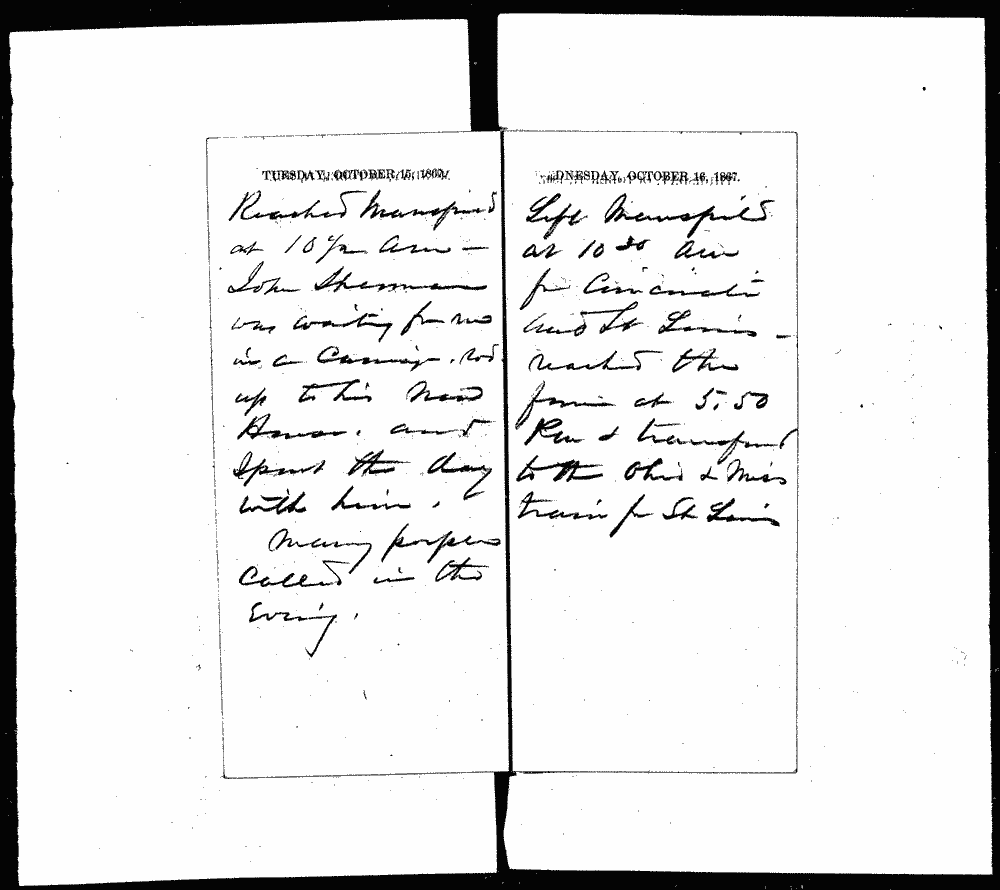 TUESDAY, OCTOBER 15, 1867.
Reached Mansfield
at 10 1/2 am —
John Sherman
was waiting for me
in a Carriage. rode
up to his New
House. and
Spent the day
with him.
Many people
Called in the
Evening.
WEDNESDAY, OCTOBER 16, 1867.
Left Mansfield
at 10 30 am
for Cincinati
and St Louis —
reached the
former at 5.50
Pm & transferred
to the Ohio & Miss
train for St Louis